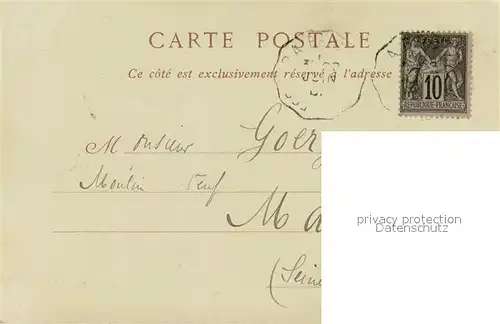 CARTE POSTALE
Ce côté est exclusivement réservé à l'adresse
POSTES
10
RÉPUBLIQUE FRANÇAISE
JUIN
Monsieur Goer
Moulin Neuf
Ma
(Seine
privacy protection
Datenschutz